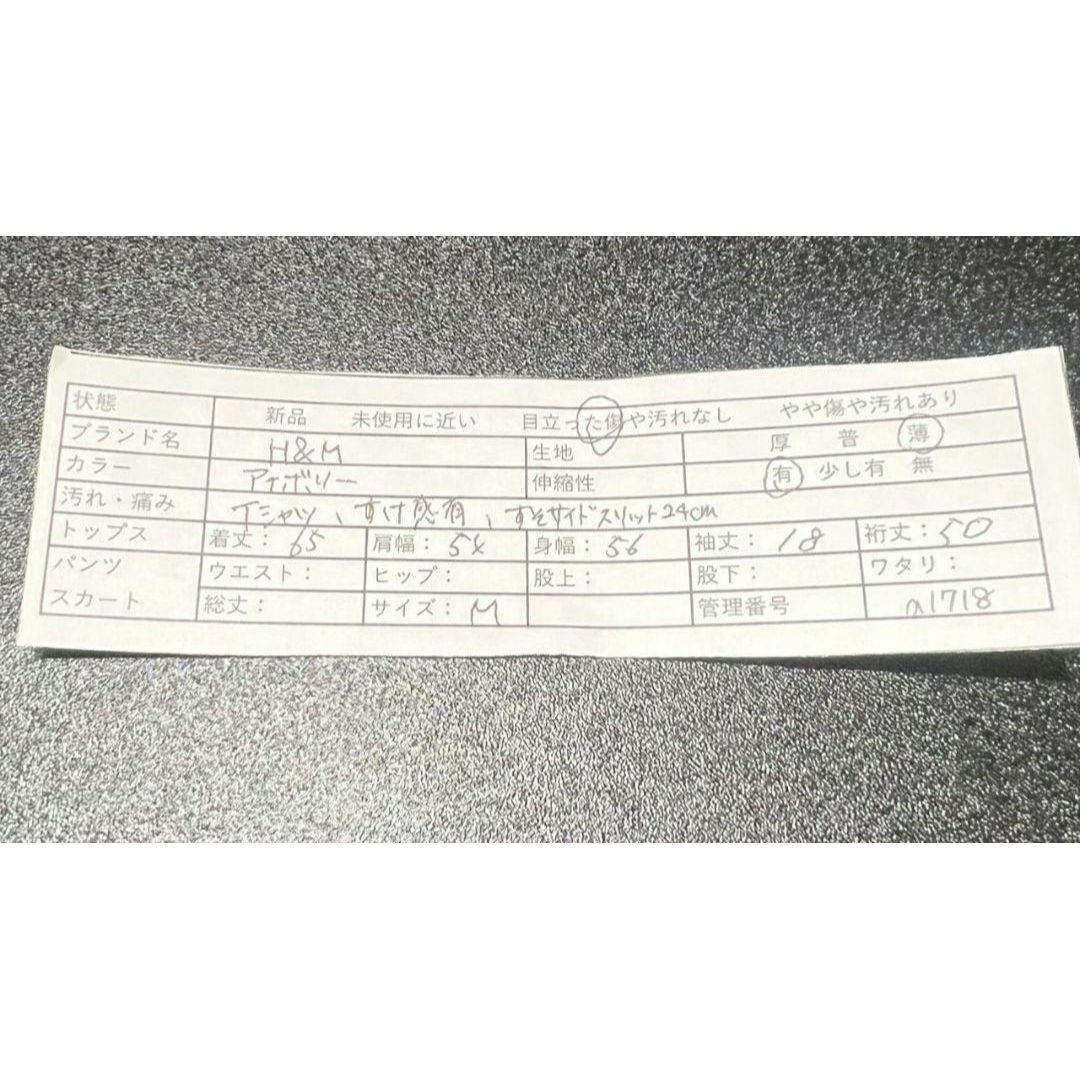 状態 新品 未使用に近い 目立った傷や汚れなし やや傷や汚れあり
ブランド名 H&M 生地 厚 普 薄
カラー アイボリー 伸縮性 有 少し有 無
汚れ・痛み Tシャツ、すけ感有、すそサイドスリット24cm
トップス 着丈: 65 肩幅: 54 身幅: 56 袖丈: 18 裄丈: 50
パンツ ウエスト: ヒップ: 股上: 股下: ワタリ:
スカート 総丈: サイズ: M 管理番号 a1718